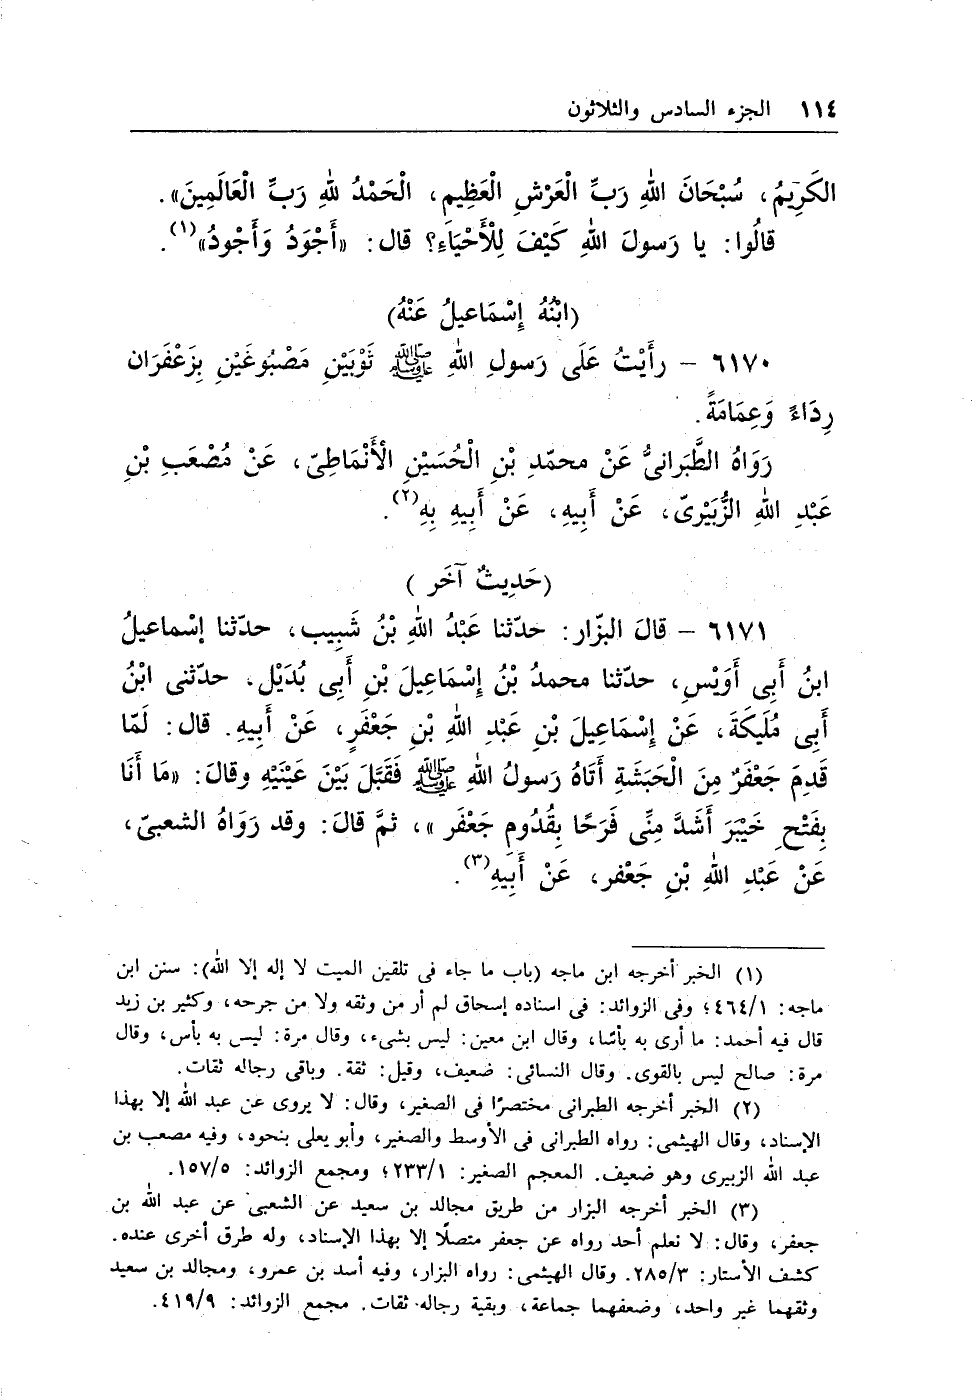 ١١٤ الجزء السادس والثلاثون
الكَرِيمُ، سُبْحَانَ اللهِ رَبِّ الْعَرْشِ الْعَظِيمِ، الْحَمْدُ للهِ رَبِّ الْعَالَمِينَ».
قالُوا: يا رَسولَ اللهِ كَيْفَ لِلْأَحْيَاءِ؟ قال: «أَجْوَدُ وَأَجْودُ»(١).
(ابْنُهُ إِسْمَاعيلُ عَنْهُ)
٦١٧٠ - رأَيْتُ عَلَى رَسولِ اللهِ ﷺ ثَوْبَيْنِ مَصْبُوغَيْنِ بِزَعْفَرَان
رِدَاءً وَعِمَامَةً.
رَوَاهُ الطَّبَرانىُّ عَنْ محمّدِ بْنِ الْحُسَيْنِ الْأَنْمَاطِىّ، عَنْ مُصْعَبِ بْنِ
عَبْدِ اللهِ الزُّبَيْرىّ، عَنْ أَبيهِ، عَنْ أَبيهِ بِهِ(٢).
(حَدِيثٌ آخَر )
٦١٧١ - قالَ البزّار: حدّثنا عَبْدُ اللهِ بْنُ شَبِيب، حدّثنا إسْماعيلُ
ابنُ أَبِى أَوَيْس، حدّثنا محمدُ بْنُ إِسْمَاعِيلَ بْنِ أَبِى بُدَيْل، حدّثنى ابْنُ
أَبِى مُلَيكَةَ، عَنْ إِسْمَاعِيلَ بْنِ عَبْدِ اللهِ بْنِ جَعْفَرٍ، عَنْ أَبِيهِ. قال: لَمّا
قَدِمَ جَعْفَرٌ مِنَ الْحَبَشَةِ أَتَاهُ رَسولُ اللهِ ﷺ فَقَبَلَ بَيْنَ عَيْنَيْهِ وقالَ: «مَا أَنَا
بِفَتْحِ خَيْبَرَ أَشَدَّ مِنِّى فَرَحًا بِقُدُومِ جَعْفَر »، ثمَّ قالَ: وقد رَوَاهُ الشعبىّ،
عَنْ عَبْدِ اللهِ بْنِ جَعْفر، عَنْ أَبيهِ(٣).
(١) الخبر أخرجه ابن ماجه (باب ما جاء فى تلقين الميت لا إله إلا الله): سنن ابن
ماجه: ٤٦٤/١؛ وفى الزوائد: فى اسناده إسحاق لم أر من وثقه ولا من جرحه، وكثير بن زيد
قال فيه أحمد: ما أرى به بأسًا، وقال ابن معين: ليس بشىء، وقال مرة: ليس به بأس، وقال
مرة: صالح ليس بالقوى. وقال النسائى: ضعيف، وقيل: ثقة. وباقى رجاله ثقات.
(٢) الخبر أخرجه الطبرانى مختصرًا فى الصغير، وقال: لا يروى عن عبد الله إلا بهذا
الإسناد، وقال الهيثمى: رواه الطبرانى فى الأوسط والصغير، وأبو يعلى بنحوه، وفيه مصعب بن
عبد الله الزبيرى وهو ضعيف. المعجم الصغير: ٢٣٣/١؛ ومجمع الزوائد: ١٥٧/٥.
(٣) الخبر أخرجه البزار من طريق مجالد بن سعيد عن الشعبى عن عبد الله بن
جعفر، وقال: لا نعلم أحد رواه عن جعفر متصلًا إلا بهذا الإسناد، وله طرق أخرى عنده.
كشف الأستار: ٢٨٥/٣. وقال الهيثمى: رواه البزار، وفيه أسد بن عمرو، ومجالد بن سعيد
وثقهما غير واحد، وضعفهما جماعة، وبقية رجاله ثقات. مجمع الزوائد: ٤١٩/٩.